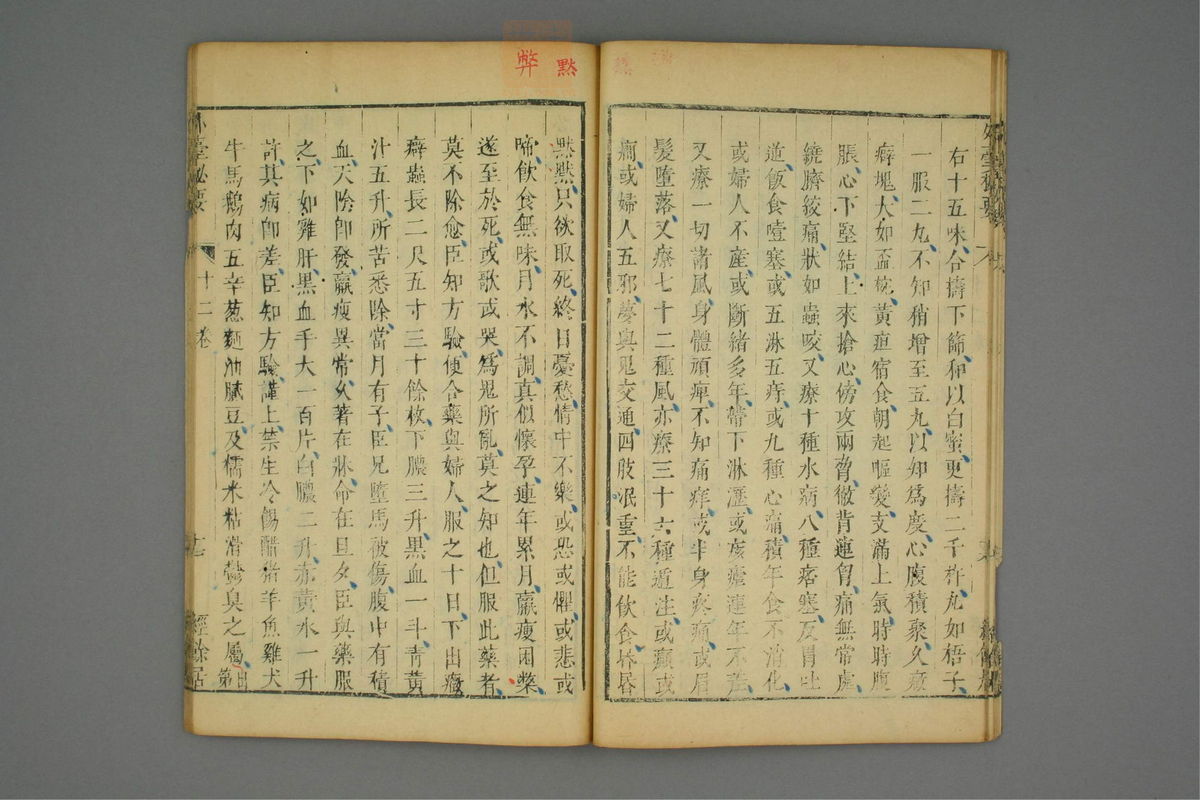 右十五味合擣下篩和以白蜜更擣二千杵丸如梧子
一服二丸不知稍增至五丸以知為度心腹積聚久癥
癖塊大如盃椀黃疸宿食朝起嘔變支滿上氣時時腹
脹心下堅結上來搶心傍攻兩脅徹背連胷痛無常處
繞臍絞痛狀如蟲咬又療十種水病八種痞塞反胃吐
逆飯食噎塞或五淋五痔或九種心痛積年食不消化
或婦人不産或斷緒多年帶下淋瀝或痎瘧連年不差
又療一切諸風身體頑痺不知痛痒或半身疼痛或眉
髮墮落又療七十二種風亦療三十六種遁注或癲或
癎或婦人五邪夢與鬼交通四肢沉重不能飲食昏昏
默默只欲取死終日憂愁情中不樂或恐或懼或悲或
啼飲食無味月水不調真似懷孕連年累月羸瘦困獘
遂至於死或歌或哭為鬼所亂莫之知也但服此藥者
莫不除愈臣知方驗便合藥與婦人服之十日下出癥
癖蟲長二尺五寸三十餘枚下膿三升黑血一斗青黃
汁五升所苦悉除當月有子臣兄墮馬被傷腹中有積
血天陰即發羸瘦異常久著在牀命在旦夕臣與藥服
之下如雞肝黑血手大一百片白膿二升赤黃水一升
許其病即差臣知方驗謹上禁生冷餳醋猪羊魚雞犬
牛馬鵝肉五辛葱麵油膩豆及糯米粘滑鬱臭之屬出第
外臺秘要
十二卷
經餘居
默
弊